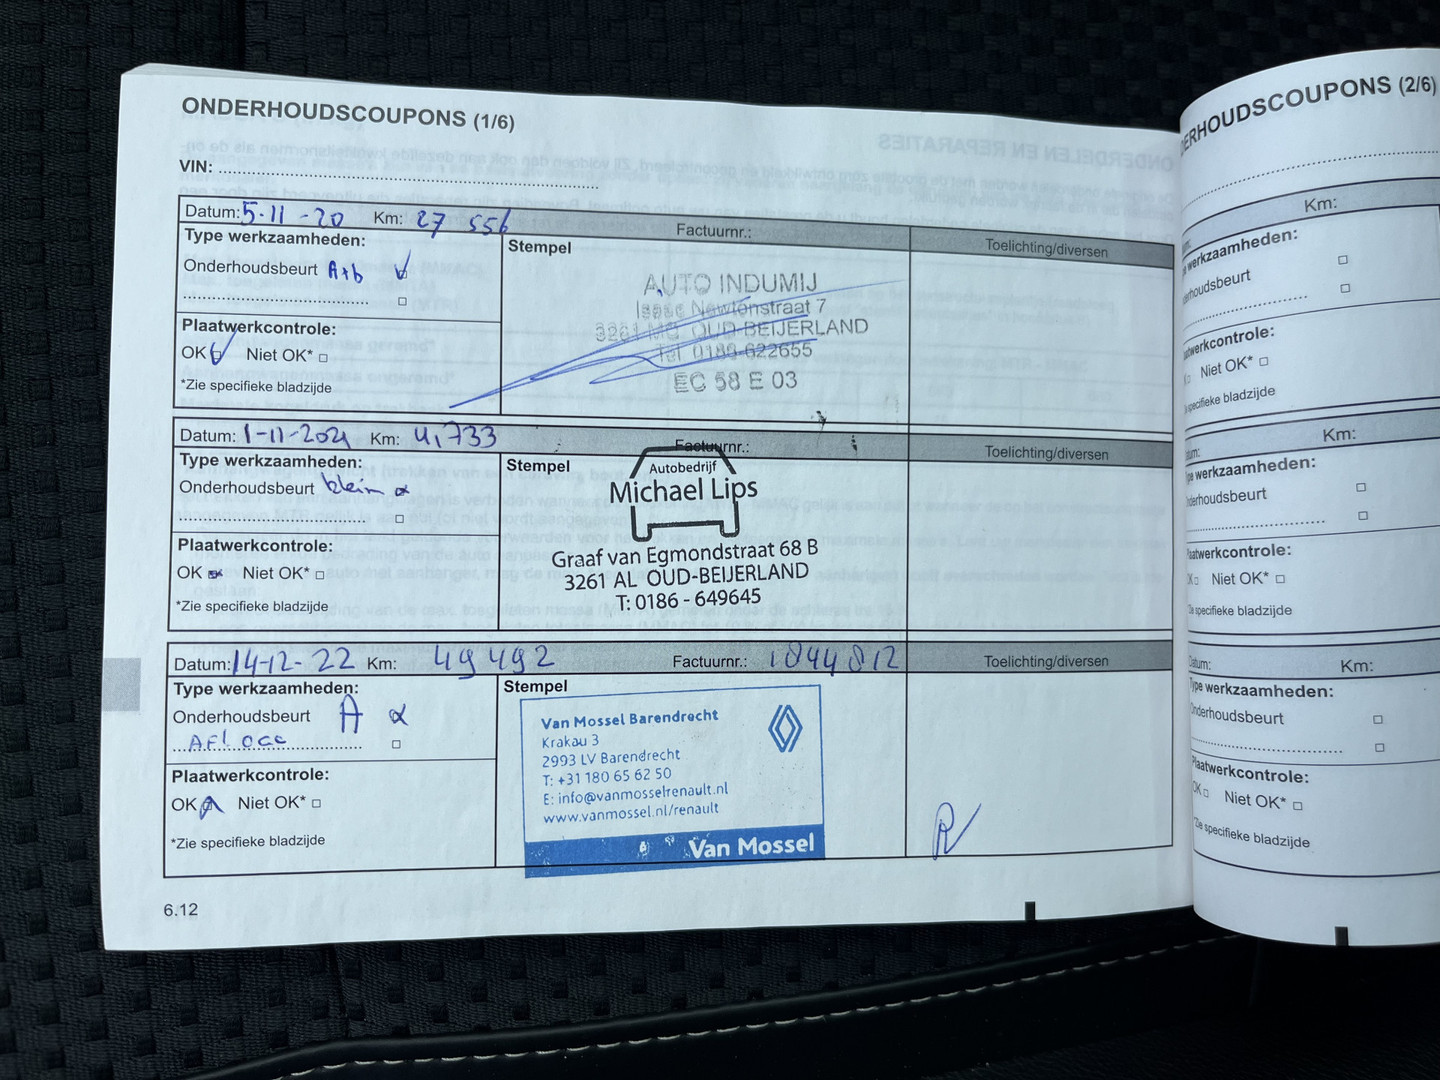 ONDERHOUDSCOUPONS (1/6)
VIN:
Datum: 5-11-20 Km: 27 556 Factuurnr.: Toelichting/diversen
Type werkzaamheden:
Onderhoudsbeurt A+b
Plaatwerkcontrole:
OK Niet OK*
*Zie specifieke bladzijde
Stempel
AUTO INDUMIJ
Isaac Newtonstraat 7
3261 MG OUD-BEIJERLAND
Tel 0186-622655
EC 58 E 03
Datum: 1-11-2021 Km: 41,733 Factuurnr.: Toelichting/diversen
Type werkzaamheden:
Onderhoudsbeurt klein
Plaatwerkcontrole:
OK Niet OK*
*Zie specifieke bladzijde
Stempel
Autobedrijf
Michael Lips
Graaf van Egmondstraat 68 B
3261 AL OUD-BEIJERLAND
T: 0186 - 649645
Datum: 14-12-22 Km: 49492 Factuurnr.: 1844812 Toelichting/diversen
Type werkzaamheden:
Onderhoudsbeurt A
Plaatwerkcontrole:
OK Niet OK*
*Zie specifieke bladzijde
Stempel
Van Mossel Barendrecht
Krakau 3
2993 LV Barendrecht
T: +31 180 65 62 50
E: info@vanmosselrenault.nl
www.vanmossel.nl/renault
Van Mossel
6.12
ERHOUDSCOUPONS (2/6)
Km:
werkzaamheden:
erhoudsbeurt
aatwerkcontrole:
Niet OK*
specifieke bladzijde
Km:
Type werkzaamheden:
nderhoudsbeurt
laatwerkcontrole:
Niet OK*
Zie specifieke bladzijde
Datum: Km:
Type werkzaamheden:
Onderhoudsbeurt
Plaatwerkcontrole:
OK Niet OK*
*Zie specifieke bladzijde